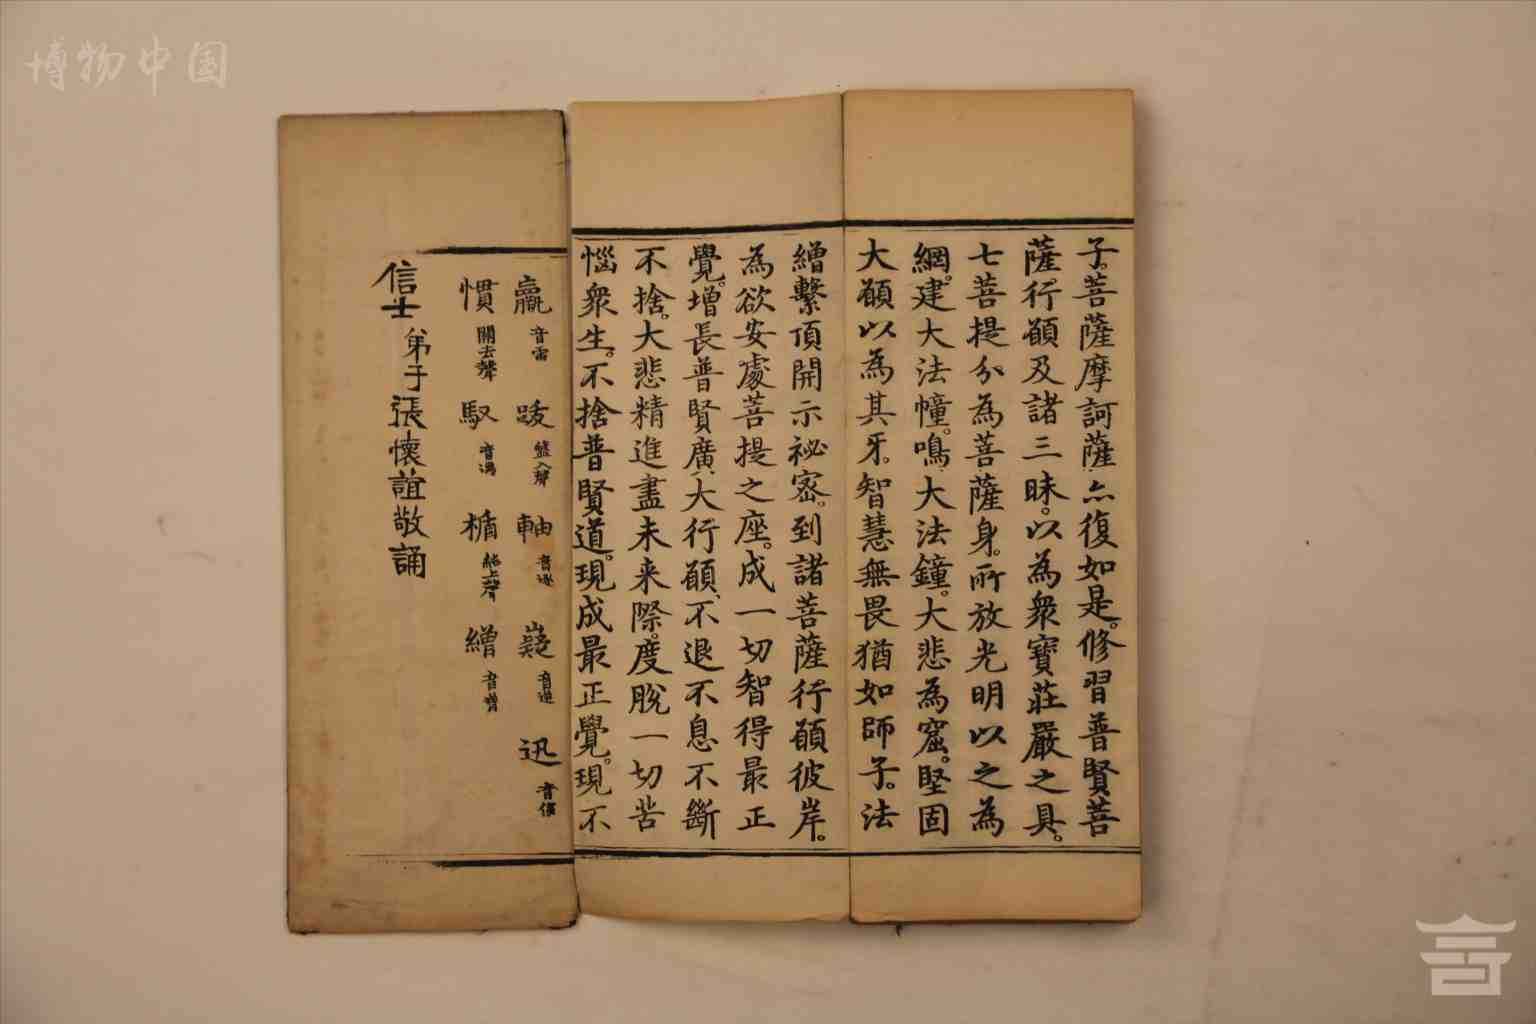 博物中国
子。菩薩摩訶薩亦復如是。修習普賢菩
薩行願及諸三昧。以為衆寶莊嚴之具。
七菩提分為菩薩身。所放光明以之為
網。建大法幢。鳴大法鐘。大悲為窟。堅固
大願以為其牙。智慧無畏猶如師子。法
繒繫頂開示祕密。到諸菩薩行願彼岸。
為欲安處菩提之座。成一切智得最正
覺。增長普賢廣大行願、不退不息不斷
不捨。大悲精進盡未来際。度脫一切苦
惱衆生。不捨普賢道。現成最正覺。現不
羸音雷 跋盤入聲 軸音逐 嶷音逆 迅音信
慣關去聲 馭音遇 楯純上聲 繒音增
信士弟子張懷誼敬誦